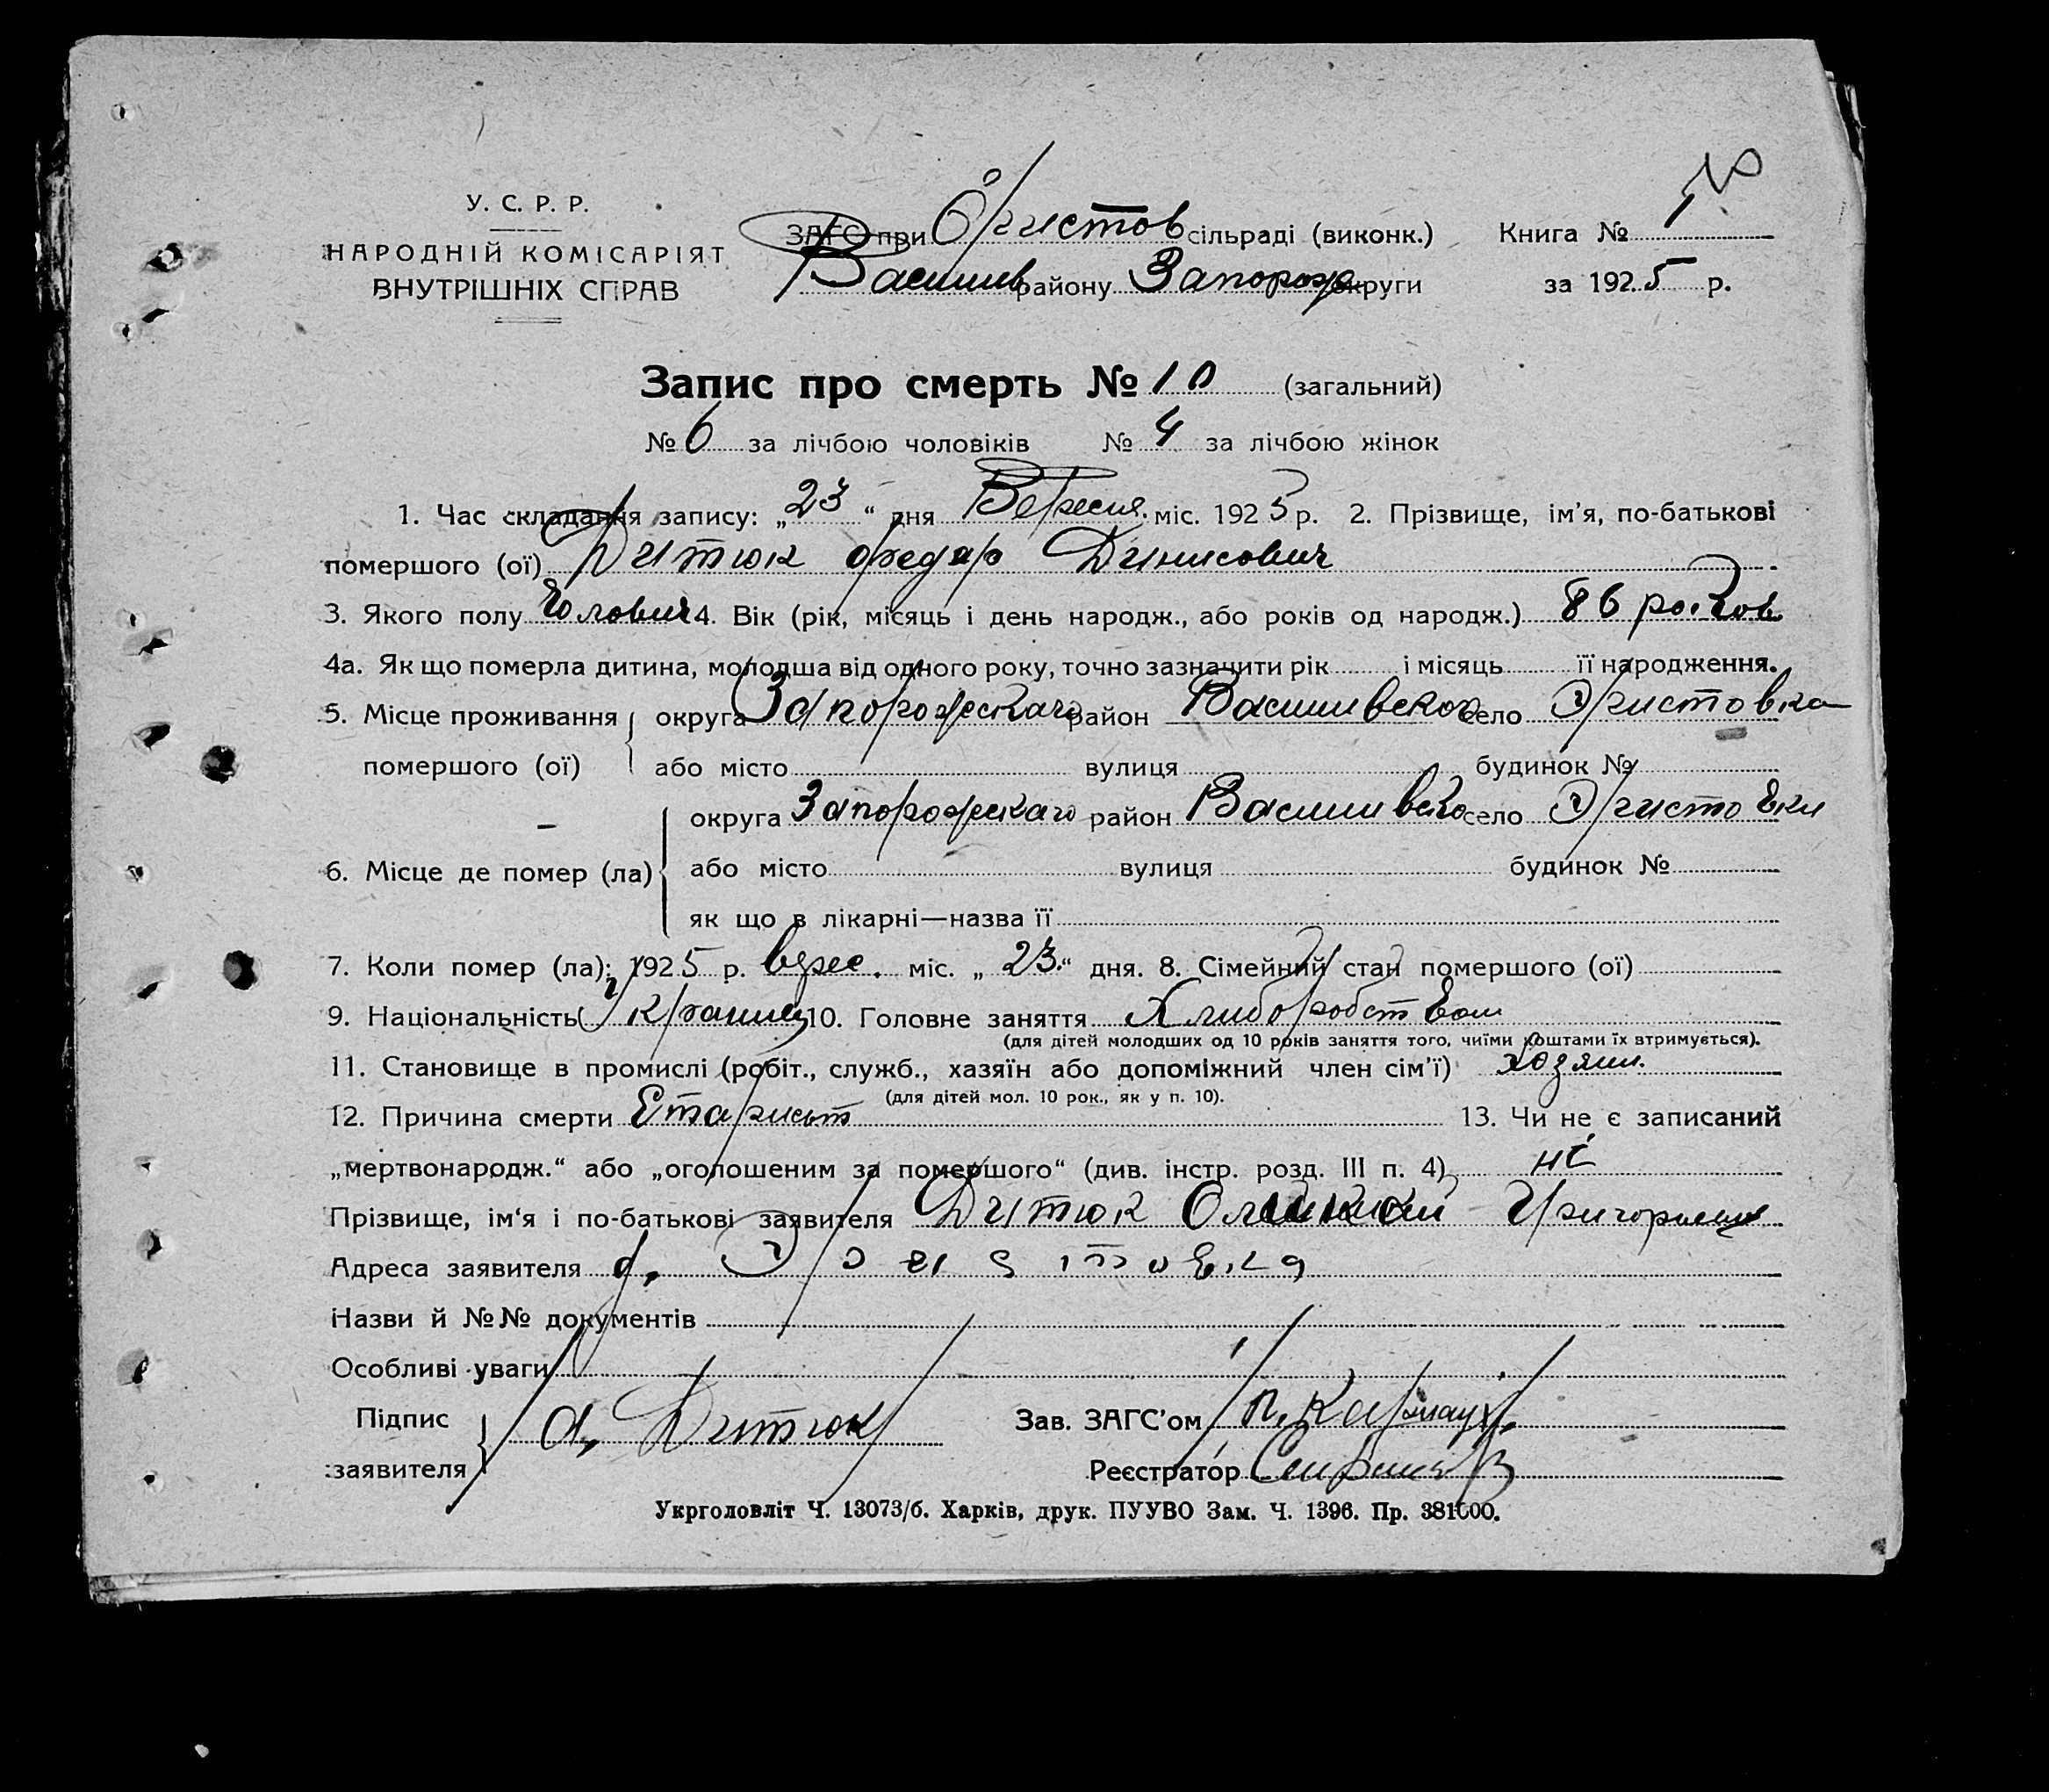 У. С. Р. Р.
НАРОДНІЙ КОМІСАРІЯТ
ВНУТРІШНІХ СПРАВ
ЗАГС при Эристов сільраді (виконк.) Книга № 1
Василив району Запорож округи за 1925 р.
Запис про смерть № 10 (загальний)
№ 6 за лічбою чоловіків № 4 за лічбою жінок
1. Час складання запису: „23“ дня Вересня міс. 1925 р. 2. Прізвище, ім'я, по-батькові
помершого (ої) Дитюк Федар Динисович
3. Якого полу Чолович 4. Вік (рік, місяць і день народж., або років од народж.) 86
4а. Як що померла дитина, молодша від одного року, точно зазначити рік і місяць її народження.
5. Місце проживання округа район село Эристовка
помершого (ої) або місто вулиця будинок №
округа район село Эристовки
6. Місце де помер (ла) або місто вулиця будинок №
як що в лікарні—назва її
7. Коли помер (ла): 1925 р. верес. міс. „23“ дня. 8. Сімейний стан помершого (ої)
9. Національність 10. Головне заняття
(для дітей молодших од 10 років заняття того, чиїми коштами їх втримується).
11. Становище в промислі (робіт., служб., хазяїн або допоміжний член сім'ї) хозяин.
(для дітей мол. 10 рок., як у п. 10).
12. Причина смерти 13. Чи не є записаний
„мертвонародж.“ або „оголошеним за помершого“ (див. інстр. розд. III п. 4) ні
Прізвище, ім'я і по-батькові заявителя Дитюк
Адреса заявителя Эристовка
Назви й №№ документів
Особливі уваги
Підпис Дитюк Зав. ЗАГС'ом
заявителя Реєстратор
Укрголовліт Ч. 13073/б. Харків, друк. ПУУВО Зам. Ч. 1396. Пр. 381000.